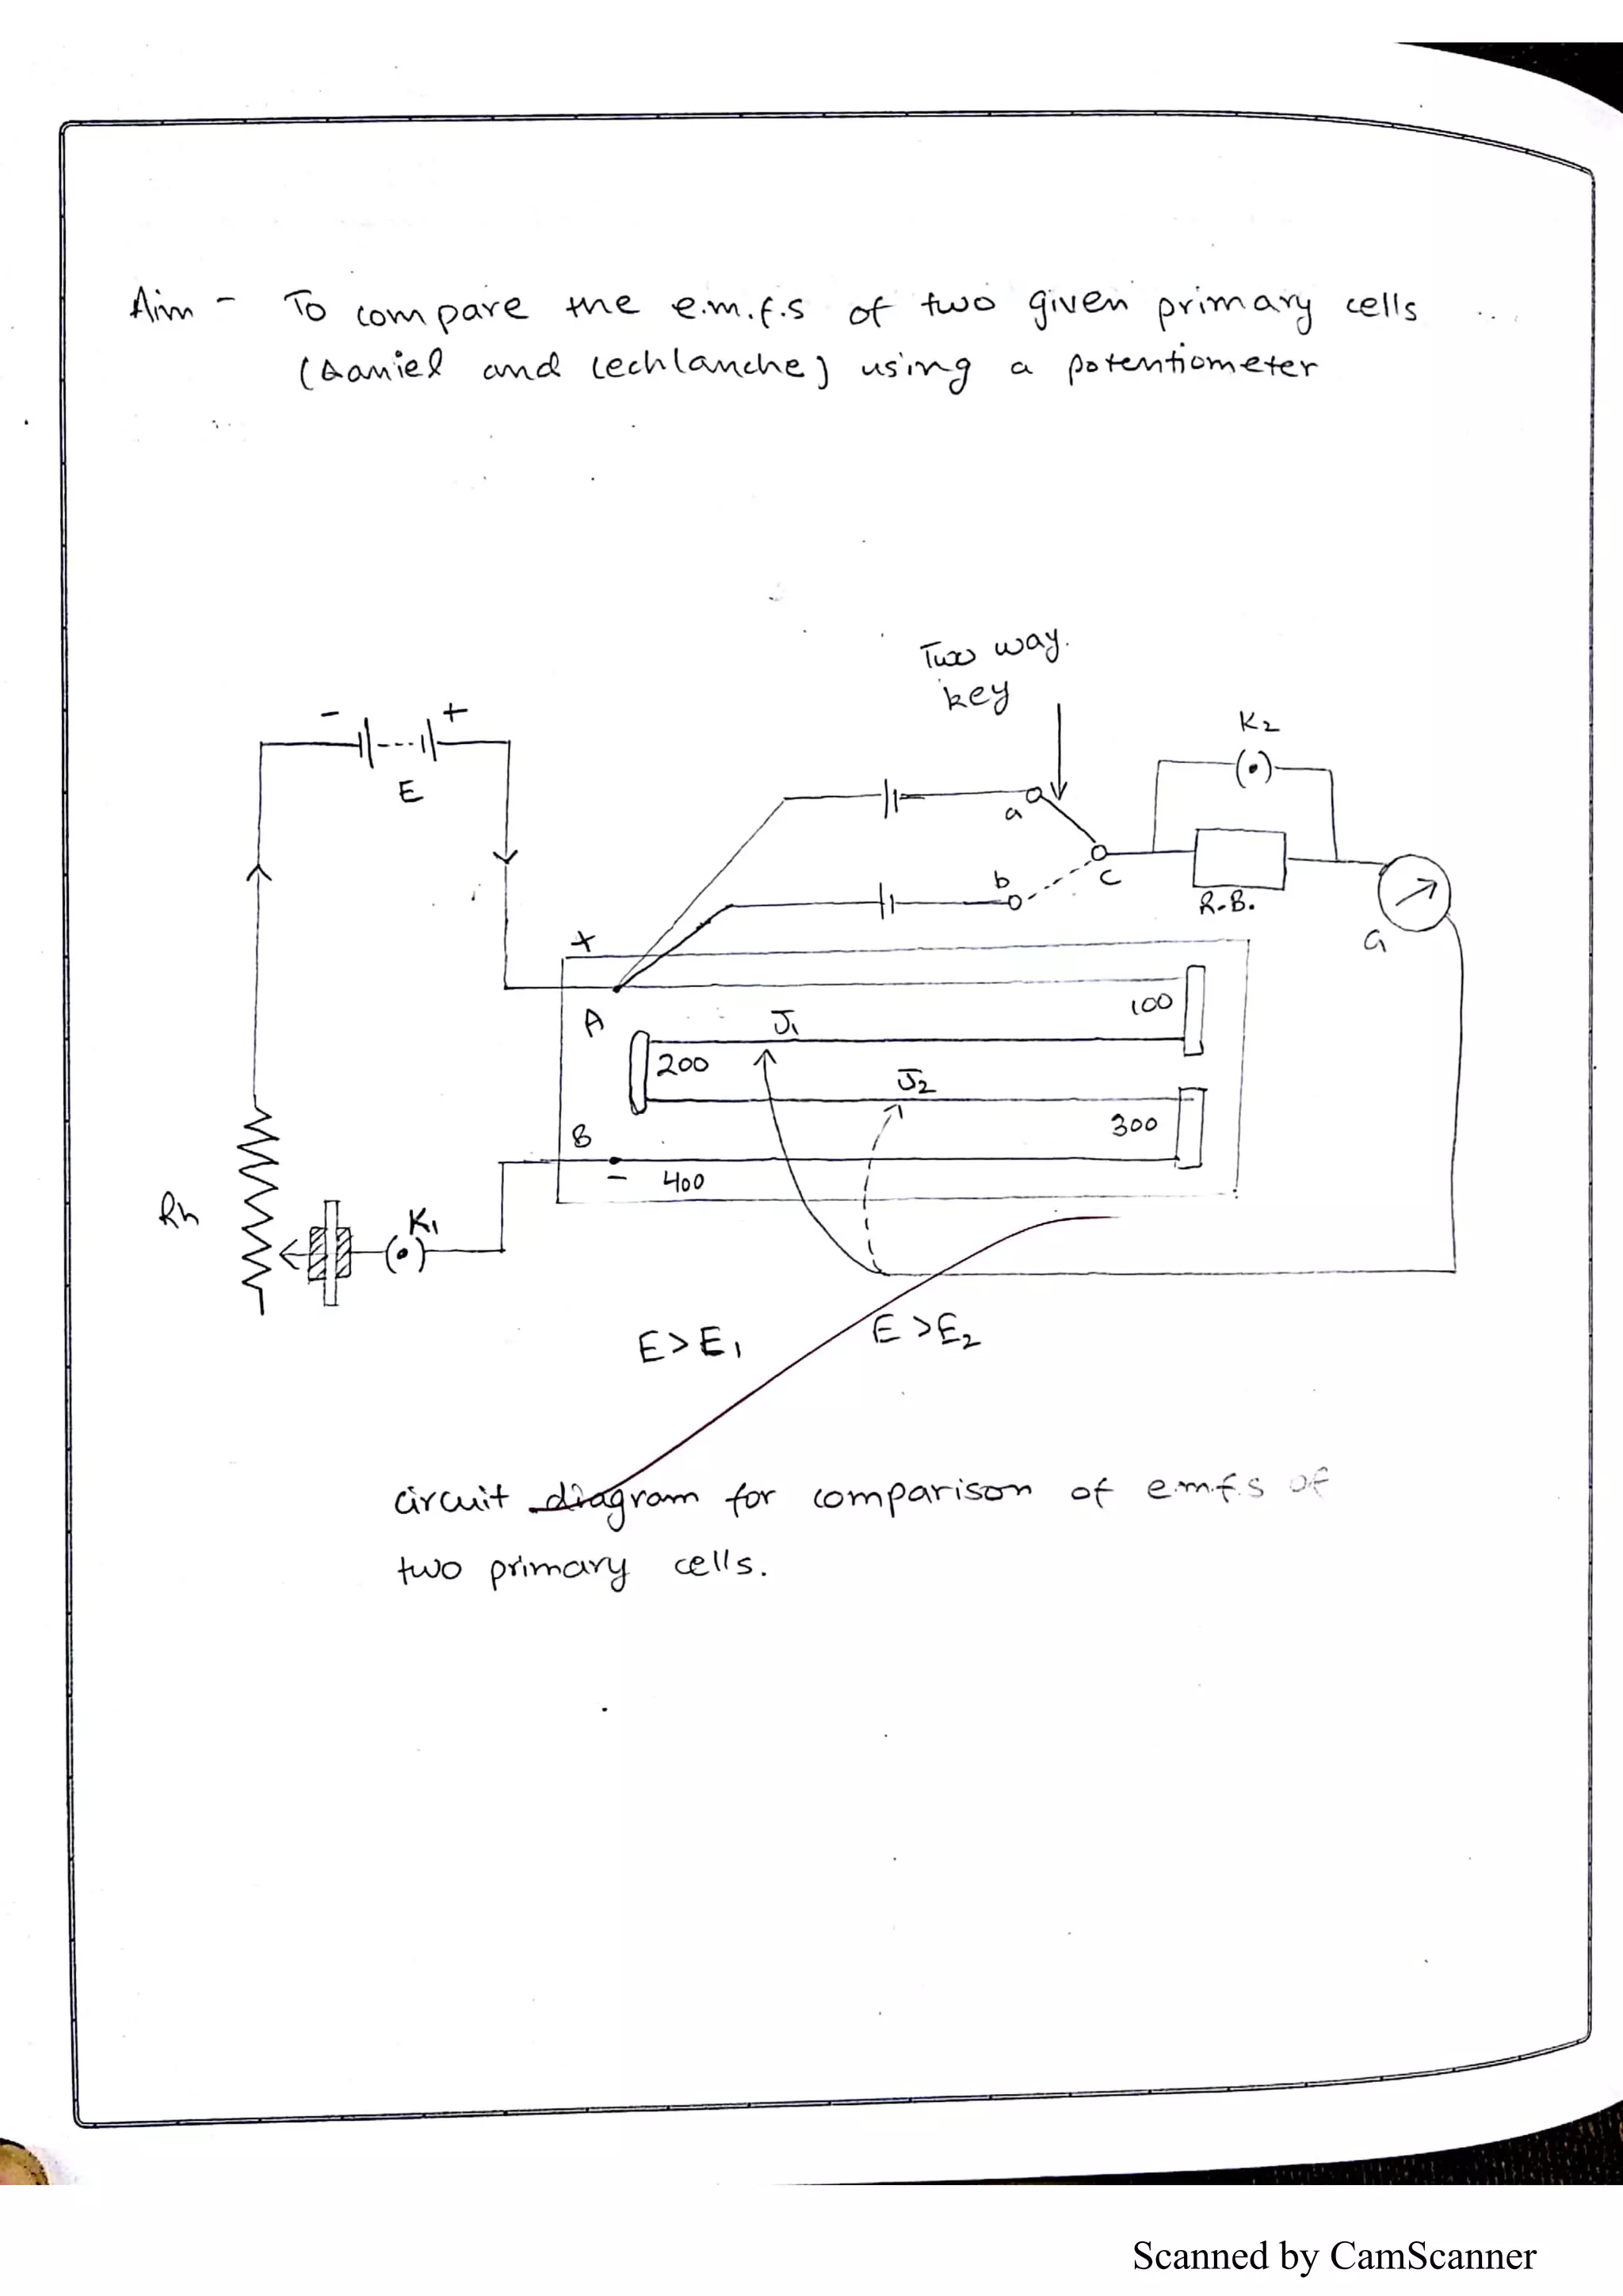 Aim - To compare the e.m.f.s of two given primary cells
(Daniel and Lechlanche) using a potentiometer
Two way.
key
- +
E
K2
a
b
c
R.B.
G
+
A
100
J1
200
J2
300
B
- 400
Rh
K1
E>E1
E>E2
circuit diagram for comparison of e.m.f.s of
two primary cells.
Scanned by CamScanner